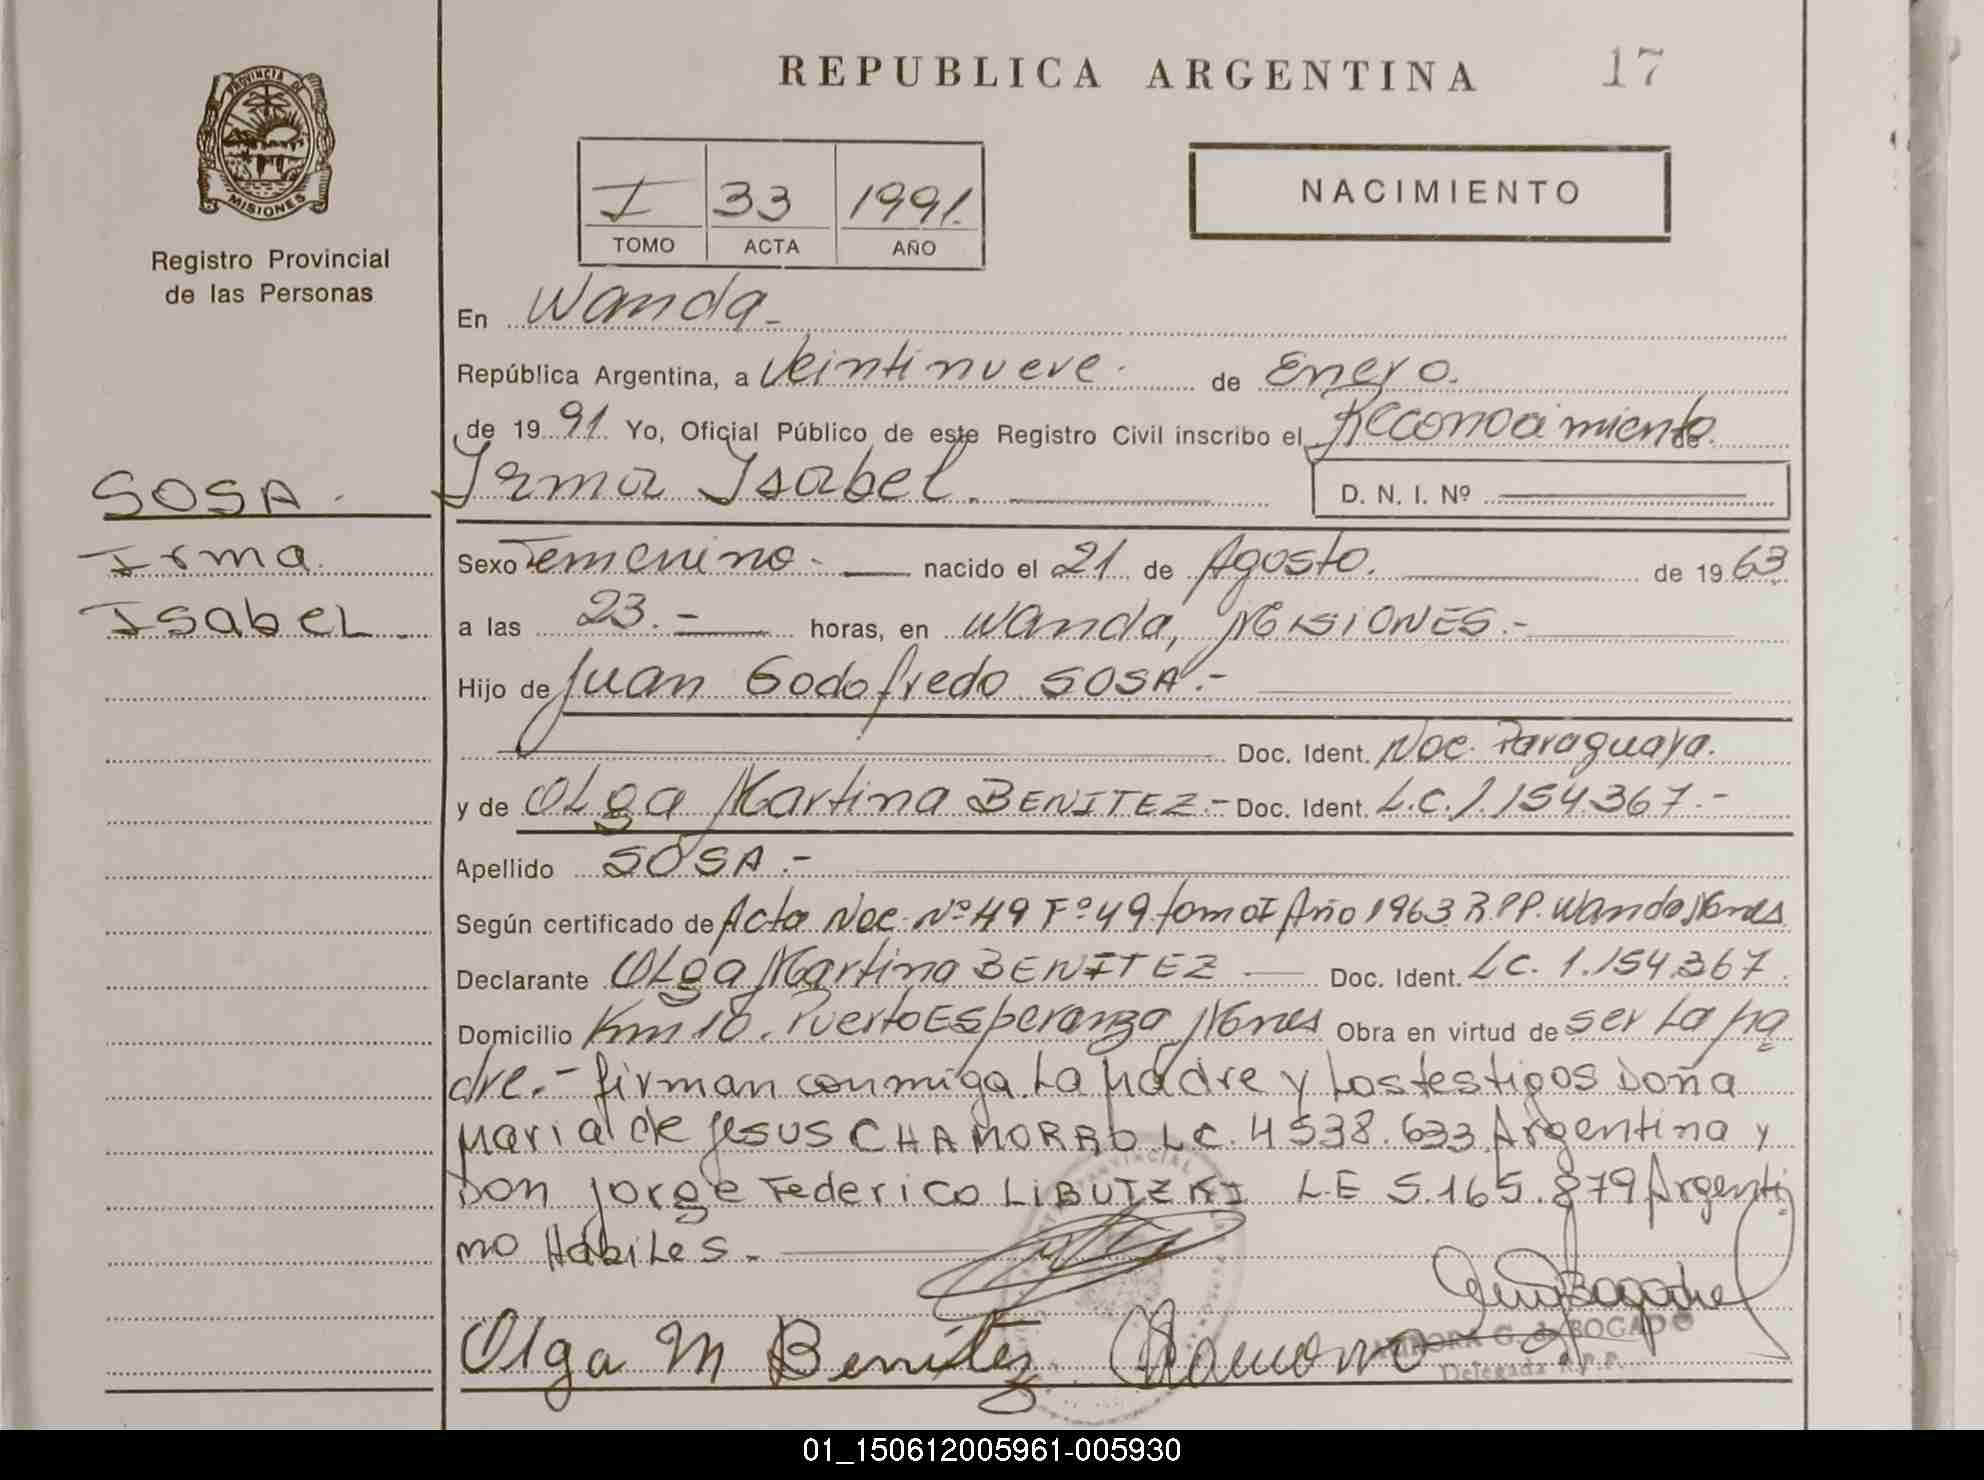 REPUBLICA ARGENTINA
17
PROVINCIA DE
MISIONES
Registro Provincial
de las Personas
I 33 1991.
TOMO ACTA AÑO
NACIMIENTO
En Wanda.-
República Argentina, a Veintinueve. de Enero.
de 1991. Yo, Oficial Público de este Registro Civil inscribo el Reconocimiento de
Irma Isabel. D. N. I. Nº
SOSA.
Irma
Isabel
Sexo Femenino.- nacido el 21 de Agosto. de 1963
a las 23.- horas, en Wanda, MISIONES.-
Hijo de Juan Godofredo SOSA.-
Doc. Ident. Noc. Paraguaya.
y de OLga Martina BENITEZ.- Doc. Ident. L.C. 1.154.367.-
Apellido SOSA.-
Según certificado de Acta Noc. Nº 49 Fº 49 tomo I Año 1963 R.P.P. Wanda Mnes
Declarante OLga Martina BENITEZ Doc. Ident. L.C. 1.154.367.
Domicilio Km 10. Puerto Esperanza Mnes Obra en virtud de ser La ma
dre.- firman conmigo La Madre y Los testigos Doña
Maria de Jesus CHAMORRO L.C. 4538.633 Argentina y
Don Jorge Federico LIBUTZKI L.E 5.165.879 Argenti
no HabiLes.-
Olga M Benitez Chamorro
AURORA G. de BOGADO
Delegada R.P.P.
01_150612005961-005930